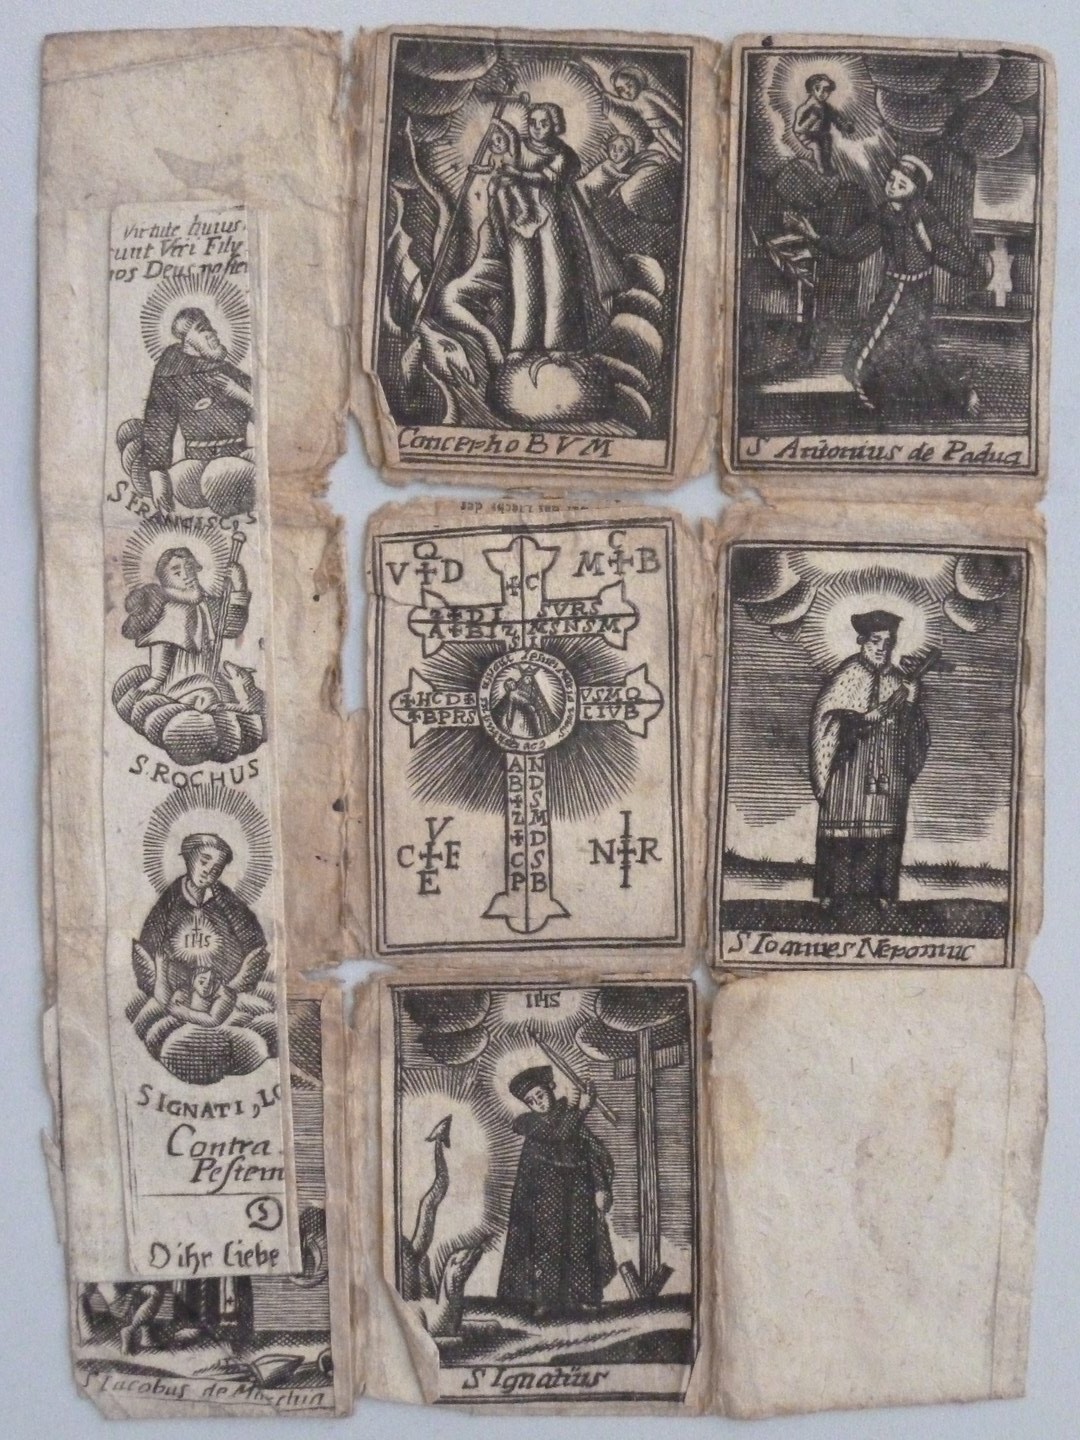 Virtute huius
sunt Veri Filÿ
nos Deus
S FRANCISCUS
S. ROCHUS
IHS
S IGNATI, LO
Contra
Pestem
D ihr Liebe
S Iacobus de Marchia
Conceptio B V M
S Antonius de Padua
Q
V + D
C
M + B
+ C
Z + D I
SVRS
A + B I Z
SNSM
+ H C D +
V S M Q
+ B P R S
L I V B
A N
B D
+ S
Z M
+ D
C S
P B
V
C + F
E
I
N + R
I
S Ioannes Nepomuc
IHS
S Ignatius